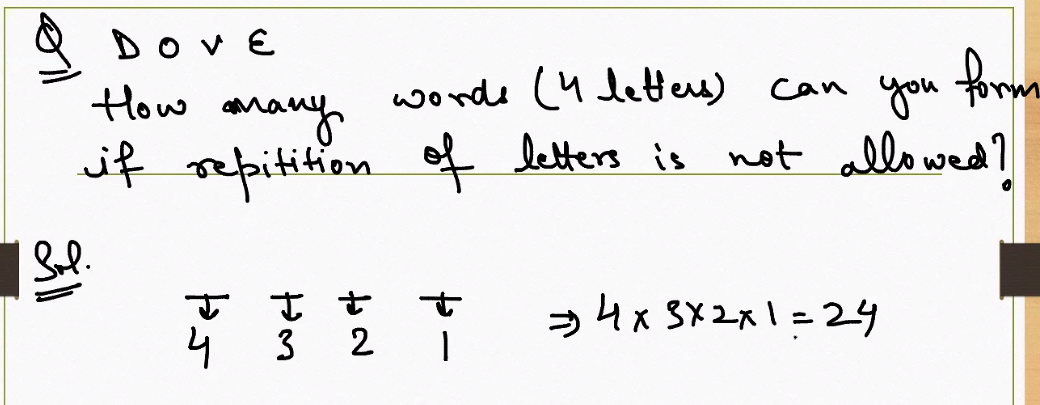 Q DOVE
How many words (4 letters) can you form
if repitition of letters is not allowed?
Sol.
4 3 2 1 ⇒ 4 x 3 x 2 x 1 = 24